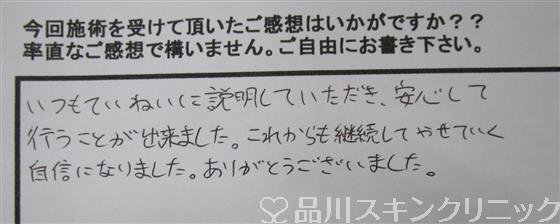 今回施術を受けて頂いたご感想はいかがですか？？
率直なご感想で構いません。ご自由にお書き下さい。
いつもていねいに説明していただき、安心して
行うことが出来ました。これからも継続してやせていく
自信になりました。ありがとうございました。
品川スキンクリニック